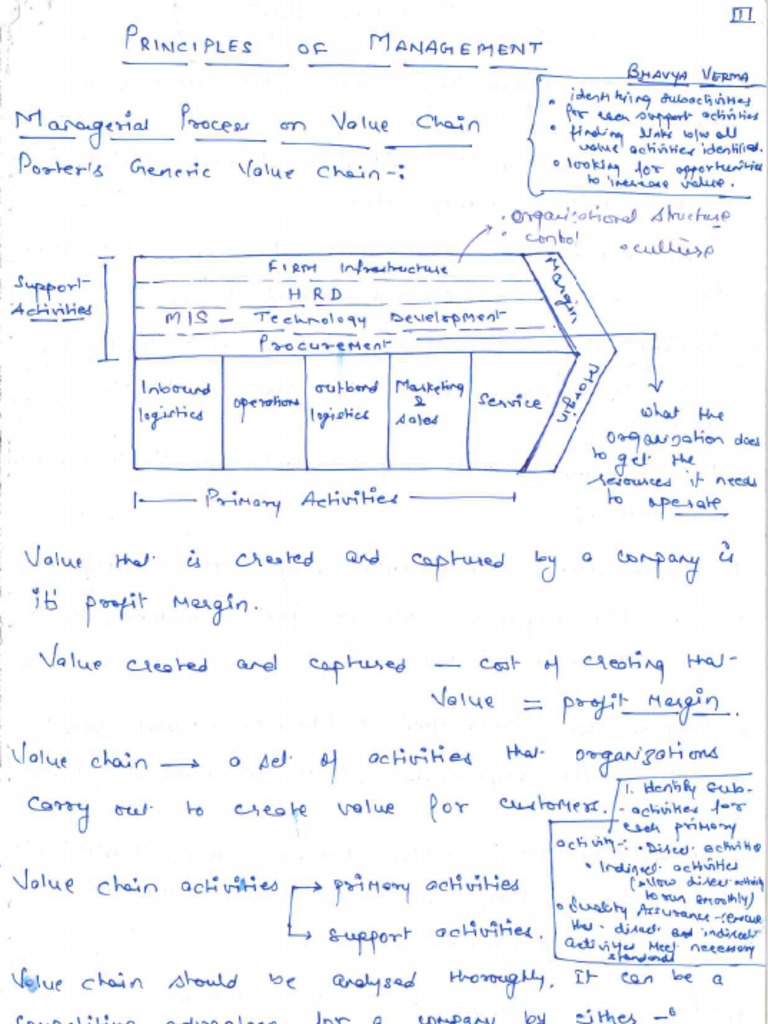 1
PRINCIPLES OF MANAGEMENT
BHAVYA VERMA
Managerial Process on Value Chain
Porter's Generic Value Chain-:
• identifying subactivities
for each support activities
• finding links b/w all
value activities identified.
• looking for opportunities
to increase value.
• organizational structure
• control • culture
Support
Activities
FIRM Infrastructure
HRD
MIS - Technology Development
Procurement
Margin
Margin
Inbound
logistics
operations
outbond
logistics
Marketing
&
sales
Service
what the
organization does
to get the
resources it needs
to operate
Primary Activities
Value that is created and captured by a company is
it's profit Margin.
Value created and captured — cost of creating that
Value = profit Margin.
Value chain → a set of activities that organizations
carry out to create value for customers.
1. Identify sub-
-activities for
each primary
activity-: • Direct activities
• Indirect activities
(allow direct activity
to run smoothly)
• Quality Assurance-(ensure
that direct and indirect
activities Meet necessary
standards
Value chain activities → primary activities
→ support activities.
Value chain should be analysed thoroughly. It can be a
competitive advantage for a company by either -: